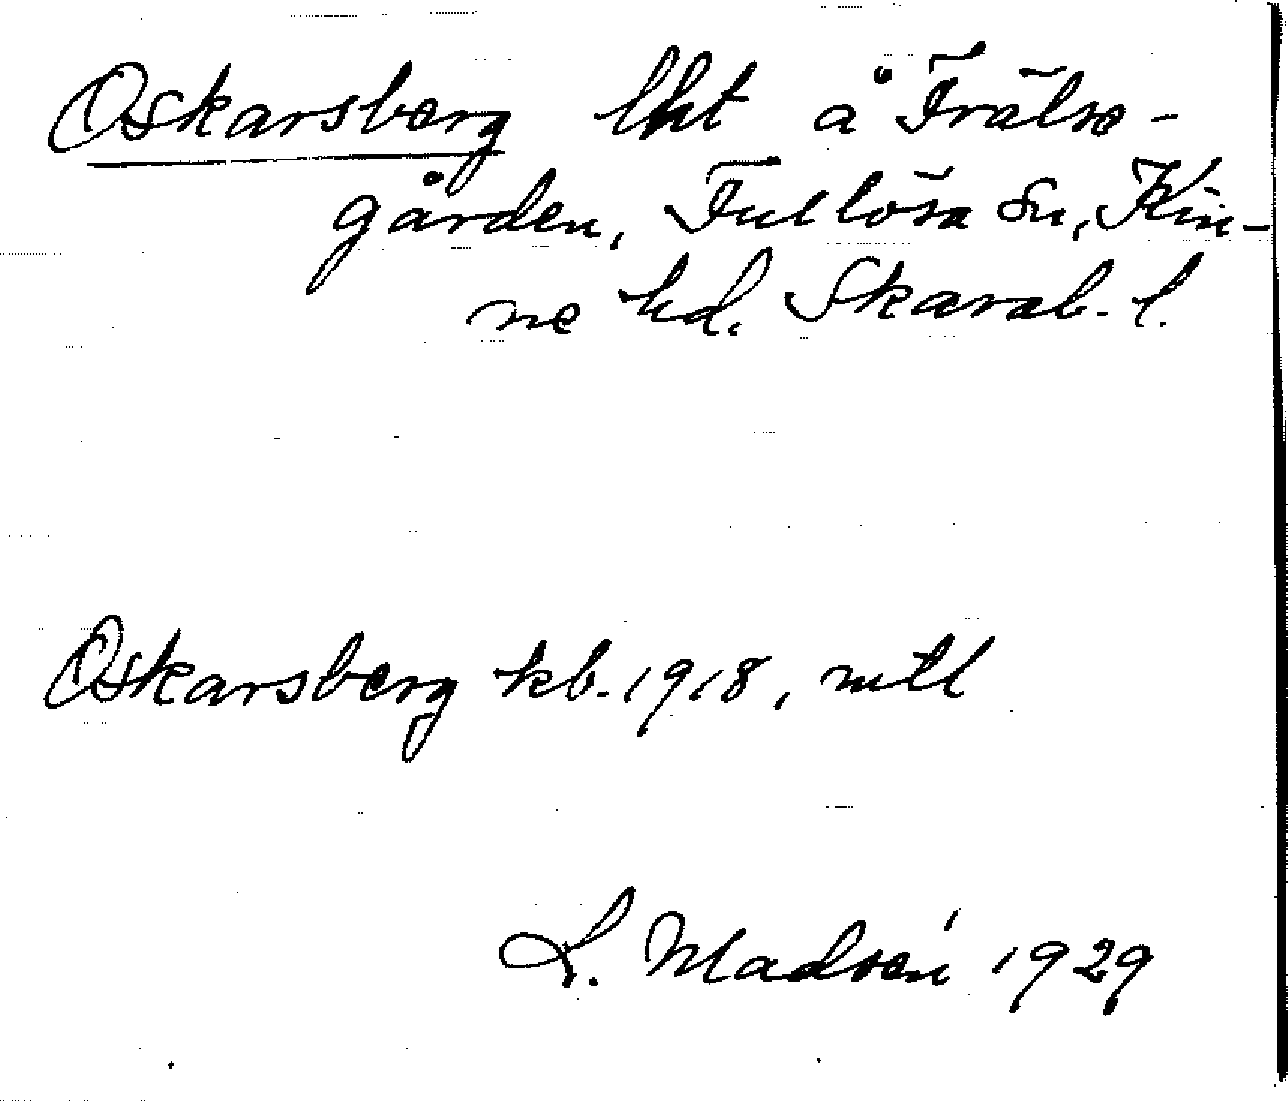 Oskarsberg lht å Frälse-
gården, Fullösa sn, Kin-
ne hd. Skarab. l.
Oskarsberg kb. 1918, mtl
L. Madsén 1929